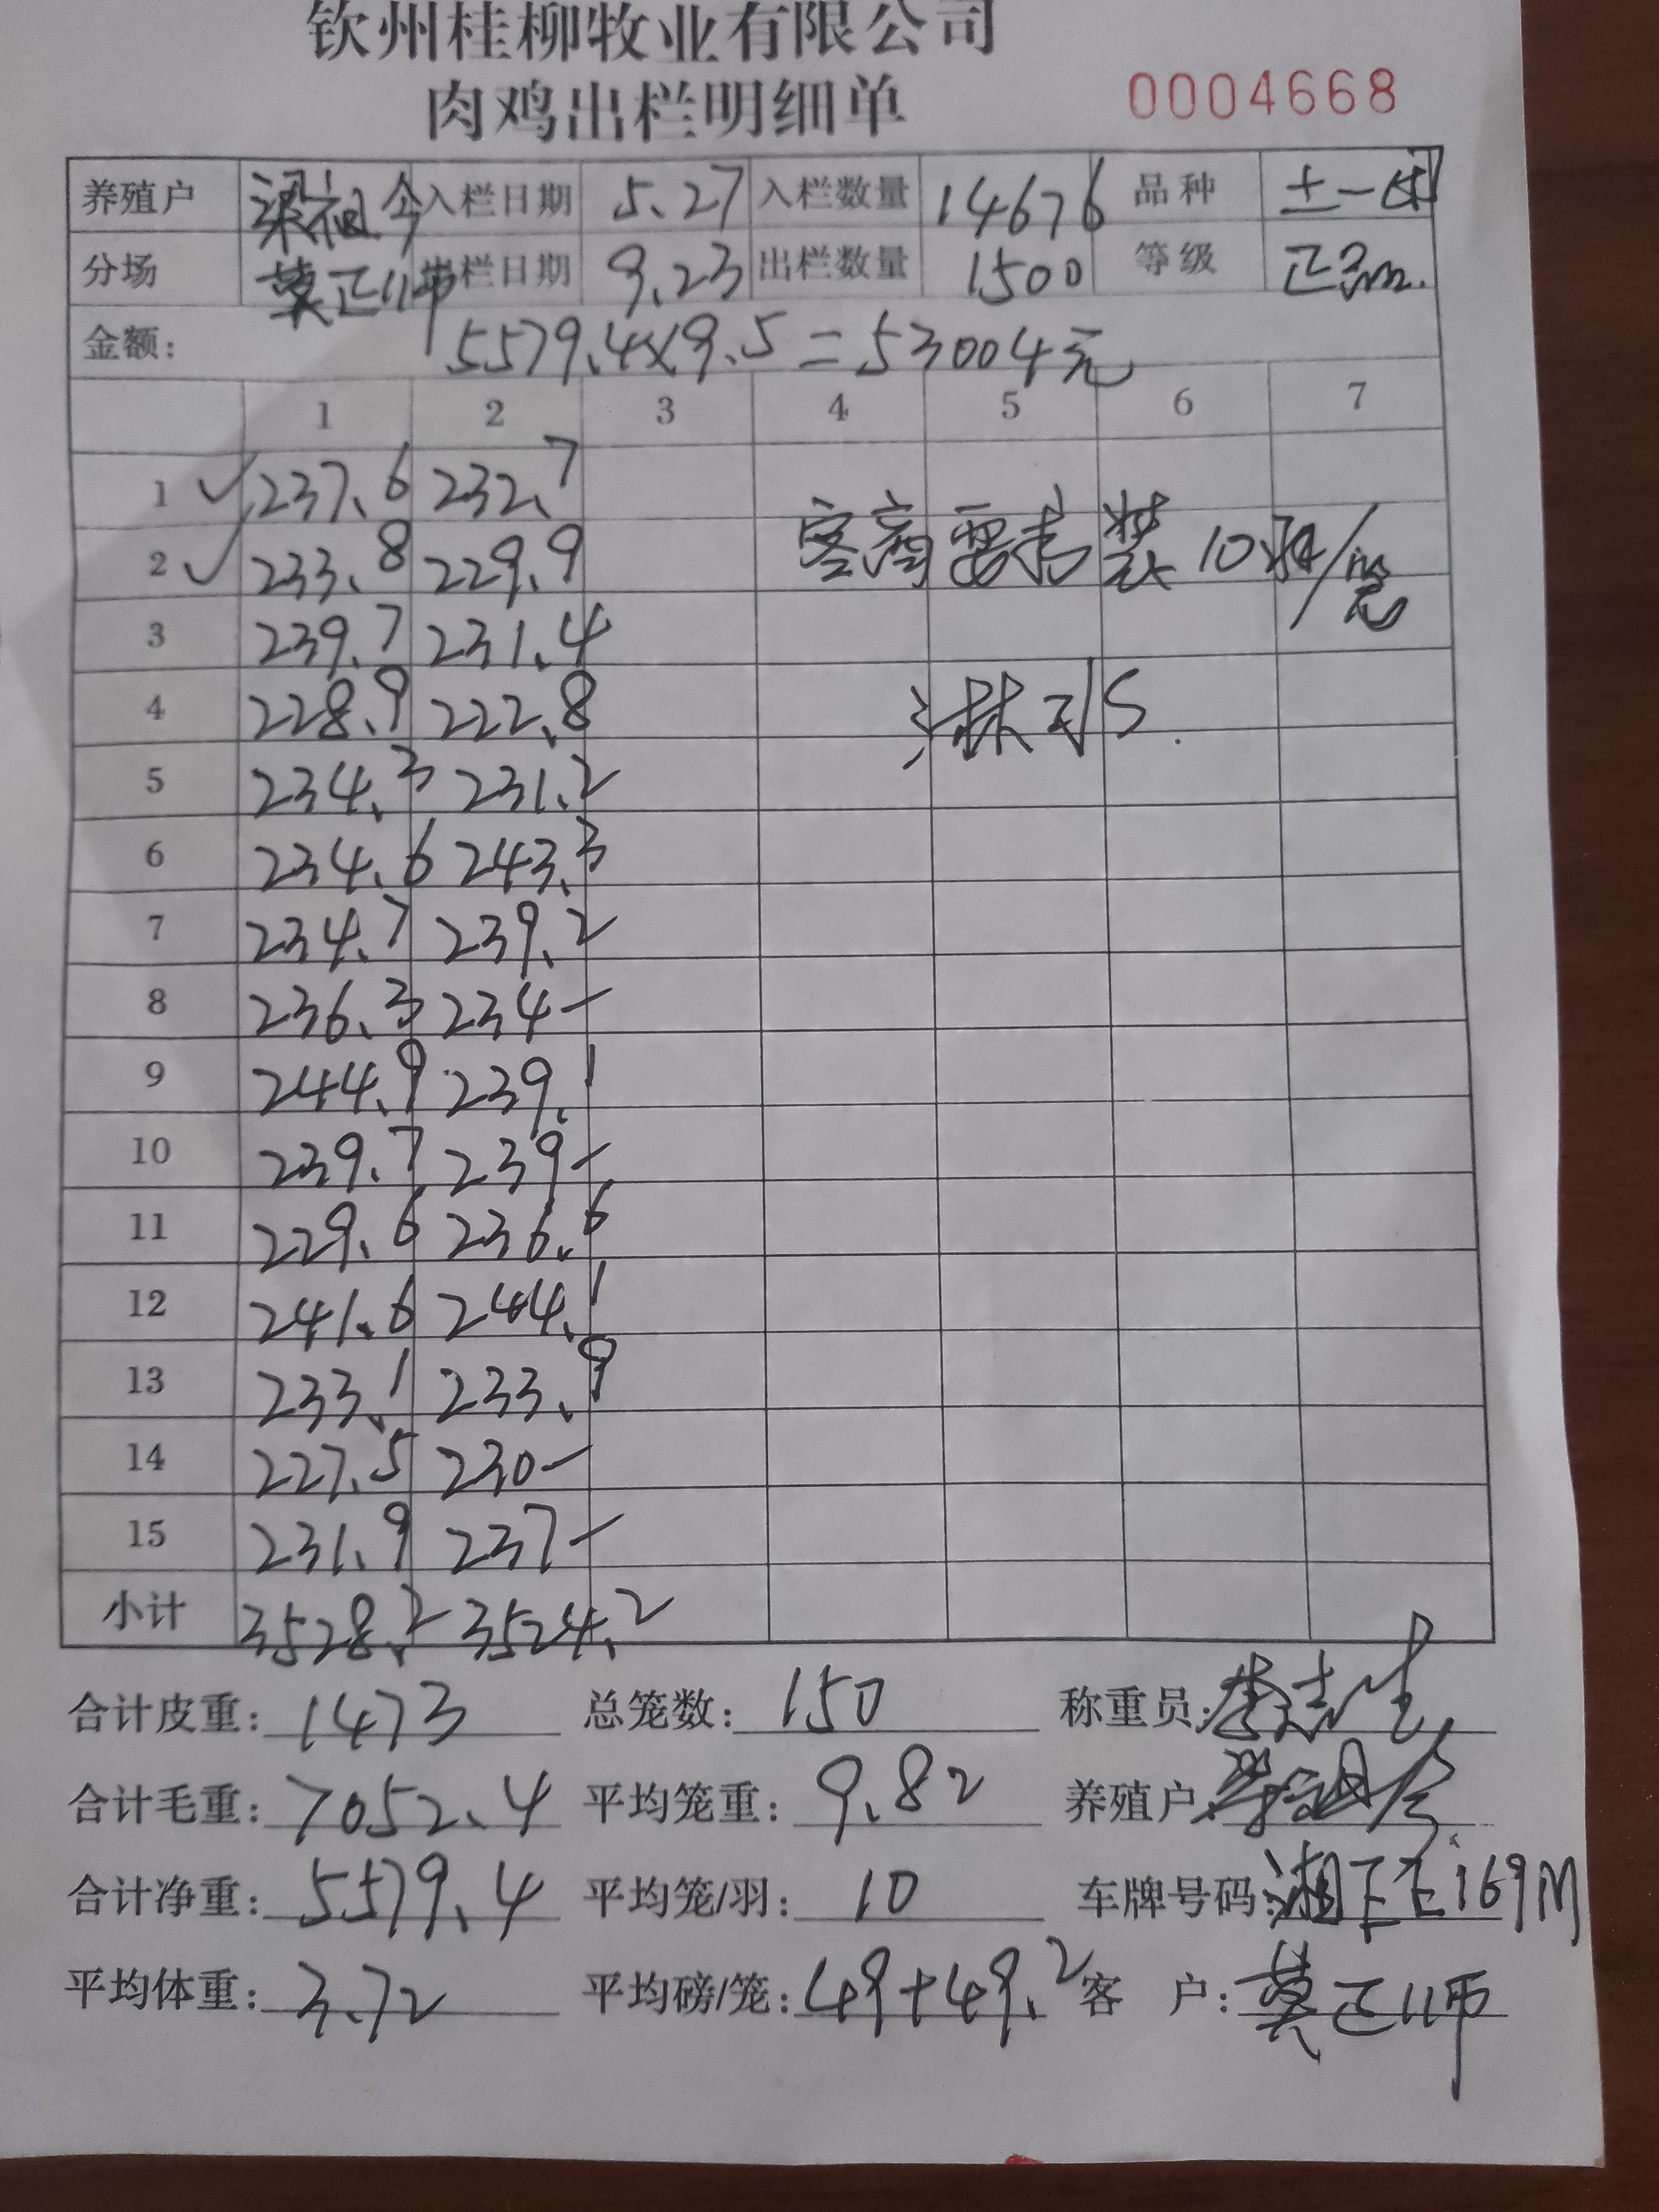 钦州桂柳牧业有限公司
肉鸡出栏明细单 0004668
养殖户 梁祖 入栏日期 5.27 入栏数量 14676 品种 土一
分场 莫正师 出栏日期 9.23 出栏数量 1500 等级 正品
金额: 5579.4×9.5=53004元
1 2 3 4 5 6 7
1 237.6 232.7
2 233.8 229.9 客商要求装10羽/笼
3 239.7 231.4
4 228.9 222.8
5 234.3 231.2
6 234.6 243.3
7 234.7 239.2
8 236.3 234-
9 244.9 239.1
10 239.7 239-
11 229.6 236.6
12 241.6 244.1
13 233.1 233.9
14 227.5 230-
15 231.9 237-
小计 3528.2 3524.2
合计皮重: 1473 总笼数: 150 称重员: 李志生
合计毛重: 7052.4 平均笼重: 9.82 养殖户:
合计净重: 5579.4 平均笼/羽: 10 车牌号码: 湘 169M
平均体重: 3.72 平均磅/笼: 49+49.2 客 户: 莫正师